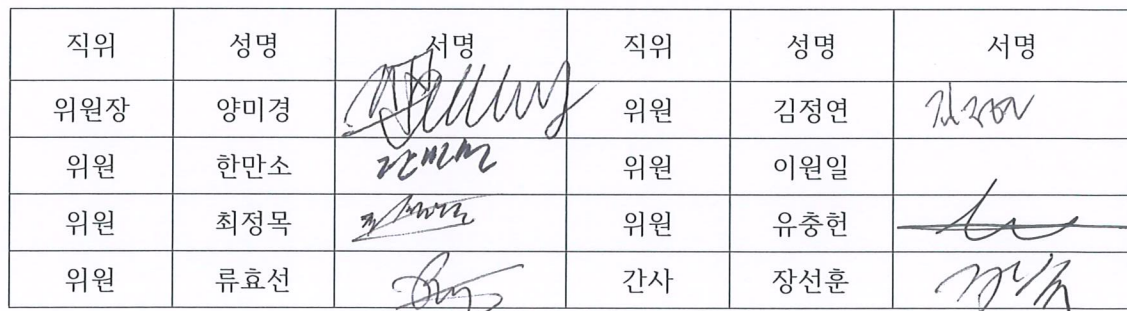 직위 성명 서명 직위 성명 서명
위원장 양미경 위원 김정연
위원 한만소 위원 이원일
위원 최정목 위원 유충헌
위원 류효선 간사 장선훈